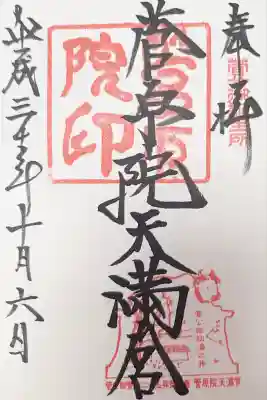 奉拝
菅原院天満宮
平成三十年十月六日
院印
菅原院天満宮